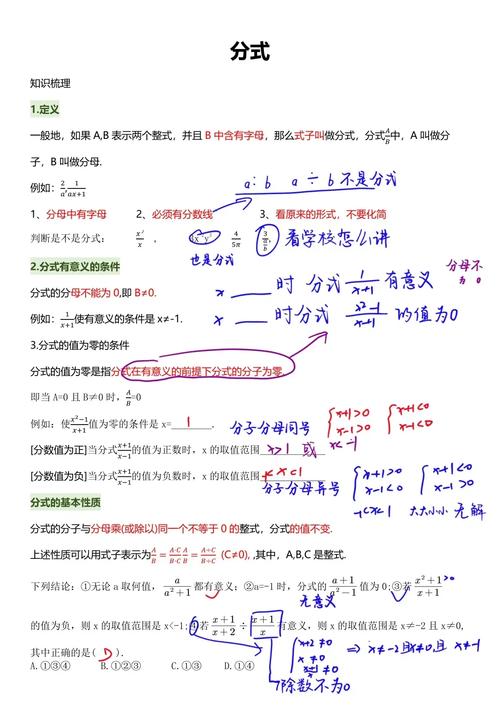 分式
知识梳理
1.定义
一般地，如果 A,B 表示两个整式，并且 B 中含有字母，那么式子叫做分式，分式A/B中，A 叫做分
子，B 叫做分母.
例如：2/a, 1/(ax+1)
a:b a÷b 不是分式
1、分母中有字母 2、必须有分数线 3、看原来的形式，不要化简
判断是不是分式： x²/x ， 4/5π
也是分式
看学校怎么讲
2.分式有意义的条件
分式的分母不能为 0,即 B≠0.
x ___ 时 分式 1/(x+1) 有意义
分母不为0
例如：1/(x+1)使有意义的条件是 x≠-1.
x ___ 时分式 (x²-1)/(x-1) 的值为0
3.分式的值为零的条件
分式的值为零是指分式在有意义的前提下分式的分子为零.
即当 A=0 且 B≠0 时，A/B=0
例如：使(x²-1)/(x+1)值为零的条件是 x=___1___.
分子分母同号 {x+1>0 x-1>0 {x+1<0 x-1<0
[分数值为正]当分式(x+1)/(x-1)的值为正数时，x 的取值范围 x>1 或 x<-1
[分数值为负]当分式(x+1)/(x-1)的值为负数时，x 的取值范围 -1<x<1
分子分母异号 {x+1>0 x-1<0 {x+1<0 x-1>0
-1<x<1 大大小小 无解
分式的基本性质
分式的分子与分母乘(或除以)同一个不等于 0 的整式，分式的值不变.
上述性质可以用式子表示为A/B=A·C/B·C A/B=A÷C/B÷C (C≠0), ,其中，A,B,C 是整式.
下列结论：①无论 a 取何值，a/(a²+1) 都有意义；②a=-1 时，分式的 (a+1)/(a²-1) 值为 0;③若 (x²+1)/(x+1) >0
无意义
的值为负，则 x 的取值范围是 x<-1;④若 (x+1)/(x+2) ÷ (x+1)/x 有意义，则 x 的取值范围是 x≠-2 且 x≠0,
其中正确的是( D ).
{x+2≠0 x≠0 (x+1)/x≠0 ⇒ x≠-2且x≠0,且 x≠-1
A.①③④ B.①②③ C.①③ D.①④
除数不为0